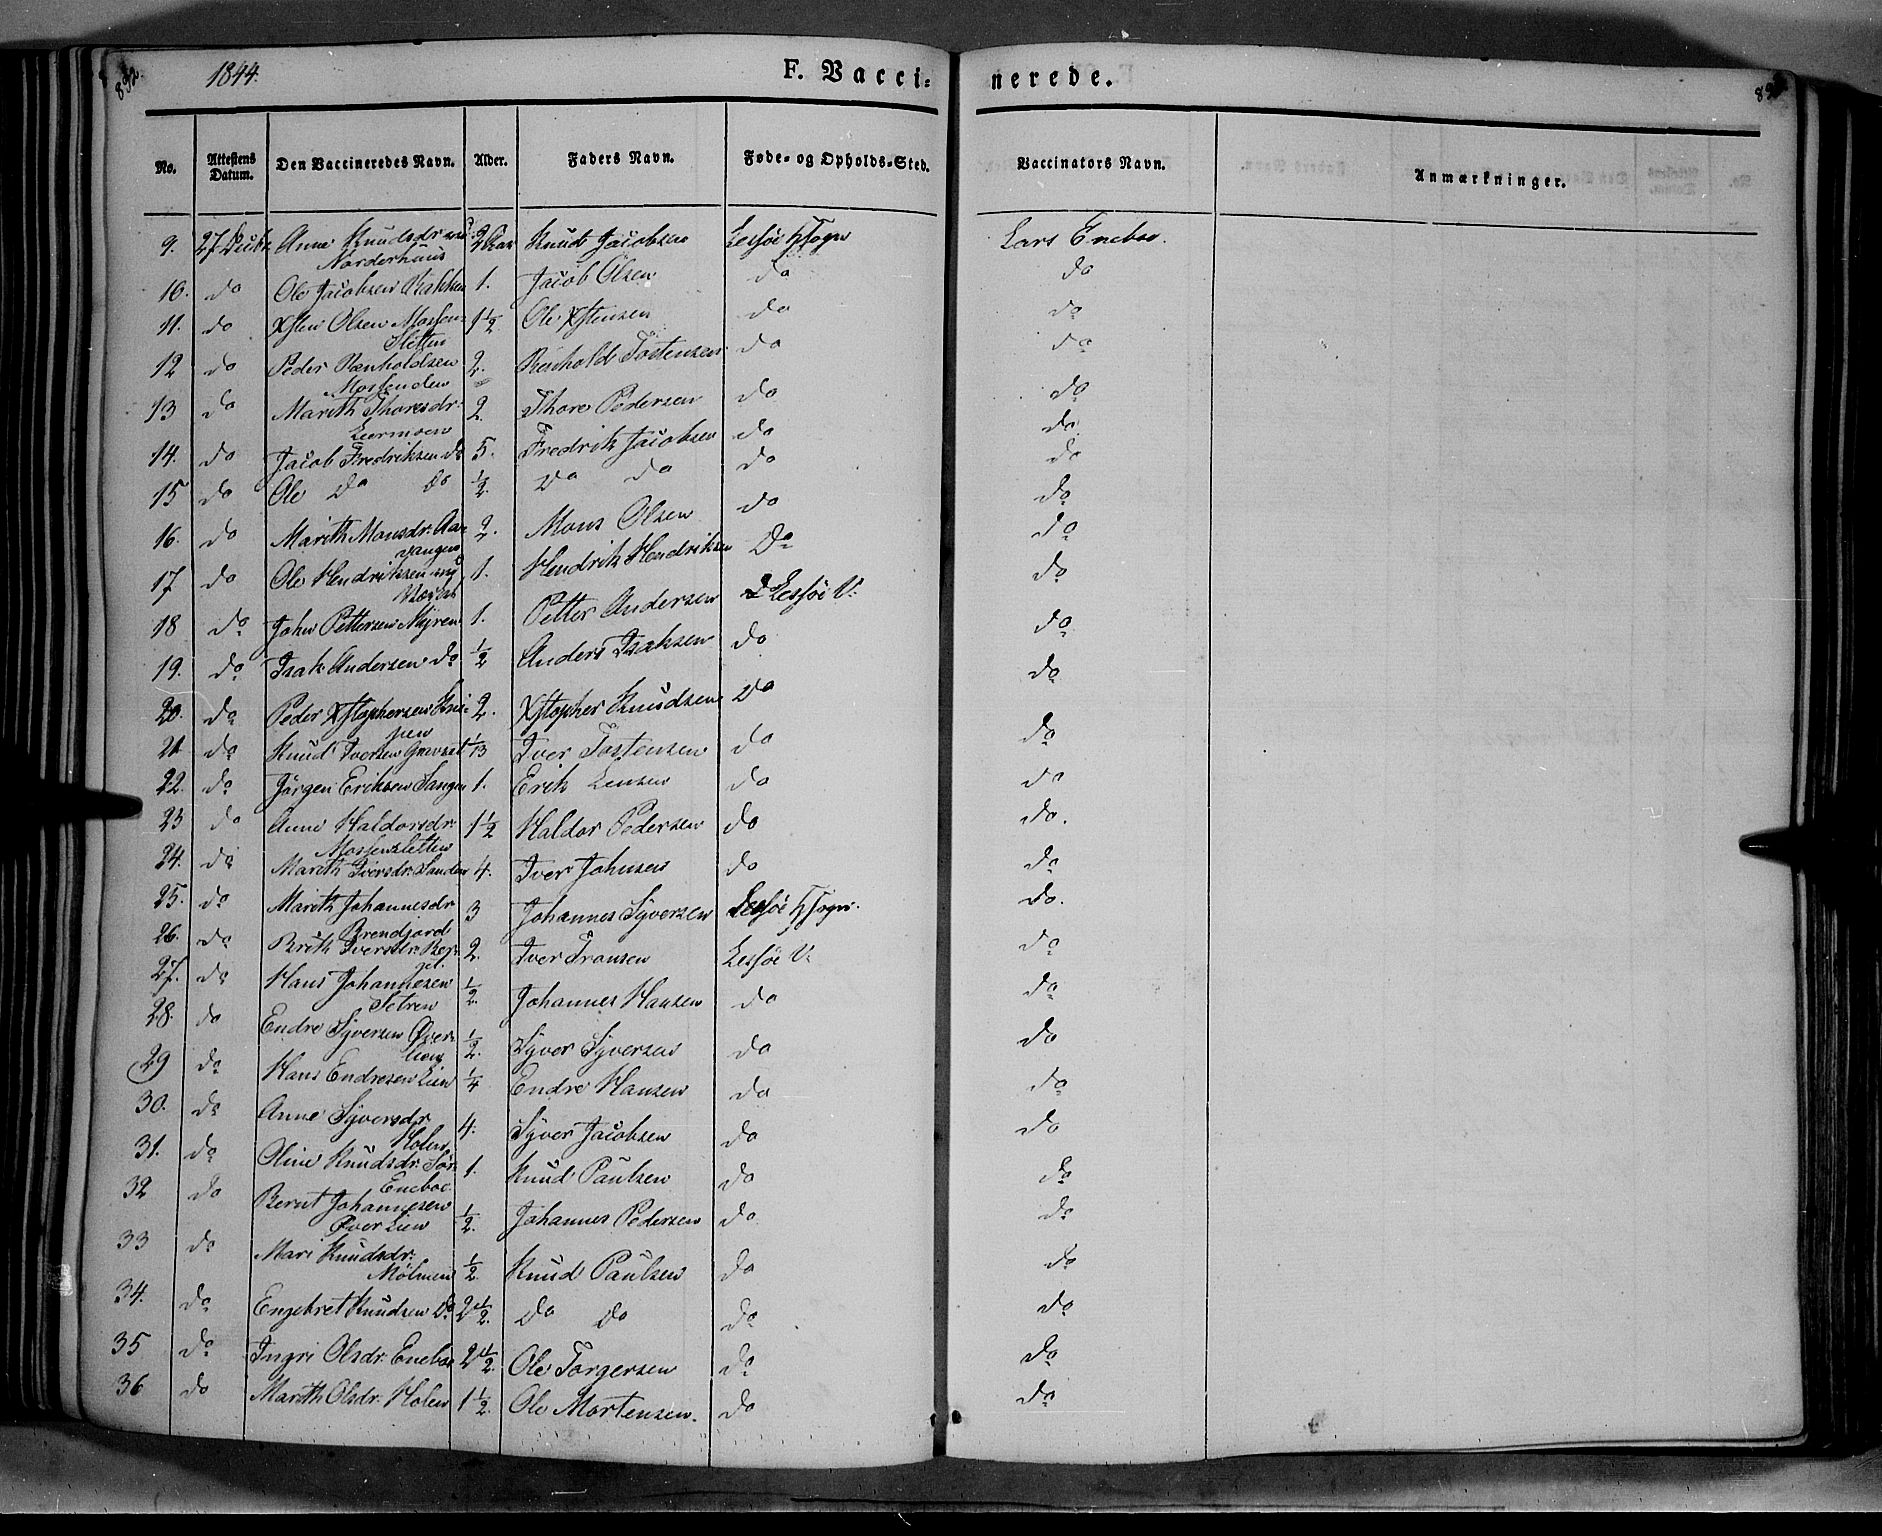 892. 1844. F. Vacci= nerede.
No. Attestens Datum. Den Vaccineredes Navn. Alder. Faders Navn. Føde- og Opholds-Sted. Vaccinators Navn. Anmærkninger.
9. 27 Anne Knudsdr 2 Aar Knud Jacobsen Lessøe HSogn Lars Eneboe.
Norderhuus
10. do Ole Jacobsen Bakken 1. Jacob Olsen do do
11. do Xsten Olsen Mossen- 1½ Ole Xstensen do do
Sletten
12 do Peder Rænholdsen 2. Reinholdt Tostensen do do
Mosenden
13 do Marith Thoresdr: 2 Thore Pedersen do do
Leermoen do
14. do Jacob Fredriksen do 5. Fredrik Jacobsen do do
15 do Ole Do do ½ Do do do do
16. do Marith Monsdr. Aa- 2. Mons Olsen do do
vangen
17 do Ole Hendriksen 1. Hendrik Hendriksen Do do
18 do John Pettersen Myren 1. Petter Andersen Lessøe V: do
19. do Isak Andersen do ½ Anders Isaksen do do
20. do Peder Xstophersen Kni- 2. Xstopher Knudsen Do
pen
21 do Knud Iversen 1/13 Iver Tostensen do do
22. do Jørgen Eriksen Sangen 1. Erik Lensen do do
23 do Anne Haldorsdr: 1½ Haldor Pedersen do do.
Mossensletten
24. do Marith Iversdr. Sanden 4. Iver Johnsen do do
25. do Marith Johannesdr 3 Johannes Syversen Lessøe HSogn. do.
Brendjord
26. do Brith Iversdr. 2. Iver Fransen Lessøe V: do
27. do Hans Johannesen ½ Johannes Hansen do do
Setren
28. do Endre Syversen Øver- ½. Syver Syversen do do
lien
29 do Hans Endresen Lien ¼ Endre Hansen do do
30. do Anne Syversdr 4. Syver Jacobsen do do
Holen
31. do Oline Knudsdr. Sør- 1. Knud Paulsen do do
Eneboe
32 do Bernt Johannesen ½. Johannes Pedersen do do
Øver Lien
33 do Mari Knudsdr: ½ Knud Paulsen do do
Mølmen
34. do Engebret Knudsen Do 2½. Do do do do
35 do Ingri Olsdr. Eneboe 2½. Ole Torgersen do do
36 do Marith Olsdr. Holen 1½. Ole Mortensen. do do